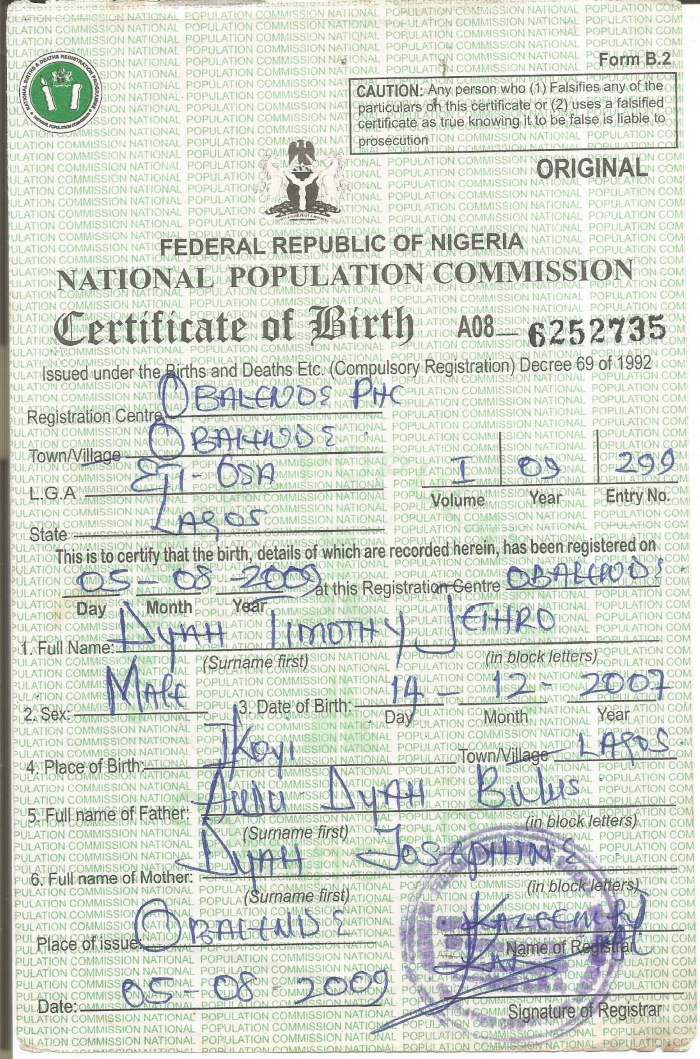 Form B.2
CAUTION: Any person who (1) Falsifies any of the
particulars on this certificate or (2) uses a falsified
certificate as true knowing it to be false is liable to
prosecution
ORIGINAL
FEDERAL REPUBLIC OF NIGERIA
NATIONAL POPULATION COMMISSION
Certificate of Birth A08— 6252735
Issued under the Births and Deaths Etc. (Compulsory Registration) Decree 69 of 1992
Registration Centre OBALENDE PHC
Town/Village OBALENDE
L.G.A ETI-OSA
I 09 299
Volume Year Entry No.
State LAGOS
This is to certify that the birth, details of which are recorded herein, has been registered on
05 - 08 - 2009 at this Registration Centre OBALENDE
Day Month Year
1. Full Name: DYAH TIMOTHY JETHRO
(Surname first) (in block letters)
2. Sex: MALE 3. Date of Birth: 14 - 12 - 2007
Day Month Year
4. Place of Birth: IKOYI Town/Village LAGOS
5. Full name of Father: AUDU DYAH BULUS
(Surname first) (in block letters)
6. Full name of Mother: DYAH JOSEPHINE
(Surname first) (in block letters)
Place of issue OBALENDE
Name of Registrar
Date: 05 - 08 - 2009
Signature of Registrar